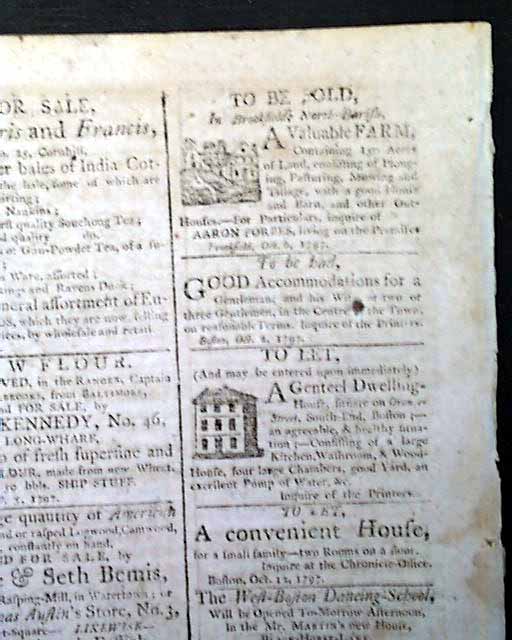 OR SALE,
ris and Francis,
o. 25, Cornhill,
er bales of India Cot-
the bale, some of which are
irting;
Nankins;
rst quality Souchong Tea;
d quality do.
or Gun-Powder Tea, of a fu-
;
Ware, assorted;
and Ravens Duck;
neral assortment of En-
DS, which they are now selling
ices, by wholesale and retail.
W FLOUR.
VED, in the RANGER, Captain
from BALTIMORE,
nd FOR SALE, by
KENNEDY, No. 46,
LONG-WHARF,
of fresh superfine and
LOUR, made from new Wheat,
bbls. SHIP STUFF.
1797.
ge quantity of American
nd or rasped Logwood, Camwood,
constantly on hand,
D FOR SALE, by
& Seth Bemis,
Rasping-Mill, in Watertown; or
mas Austin's Store, No. 3,
t-Square— LIKEWISE—
TO BE SOLD,
In Brookfield, North-Parish,
A Valuable FARM,
Containing 150 Acres
of Land, consisting of Plong-
ing, Pasturing, Mowing and
Tillage, with a good House
and Barn, and other Out-
Houses.—For Particulars, inquire of
AARON FORBES, living on the Premises
Brookfield, Oct. 6, 1797.
To be had,
GOOD Accommodations for a
Gentleman and his Wife or two or
three Gentlemen, in the Centre of the Town,
on reasonable Terms. Inquire of the Printers.
Boston, Oct. 2, 1797.
TO LET,
(And may be entered upon immediately)
A Genteel Dwelling-
House, situate on
Street, South-End, Boston;—
an agreeable, & healthy situa-
tion;—Consisting of a large
Kitchen, Washroom, & Wood-
House, four large Chambers, good Yard, an
excellent Pump of Water, &c.
Inquire of the Printers.
TO LET,
A convenient House,
for a small family—two Rooms on a floor.
Inquire at the Chronicle-Office.
Boston, Oct. 12, 1797.
The West-Boston Dancing-School,
Will be Opened To-Morrow Afternoon,
in the Mr. MARTIN's new House,